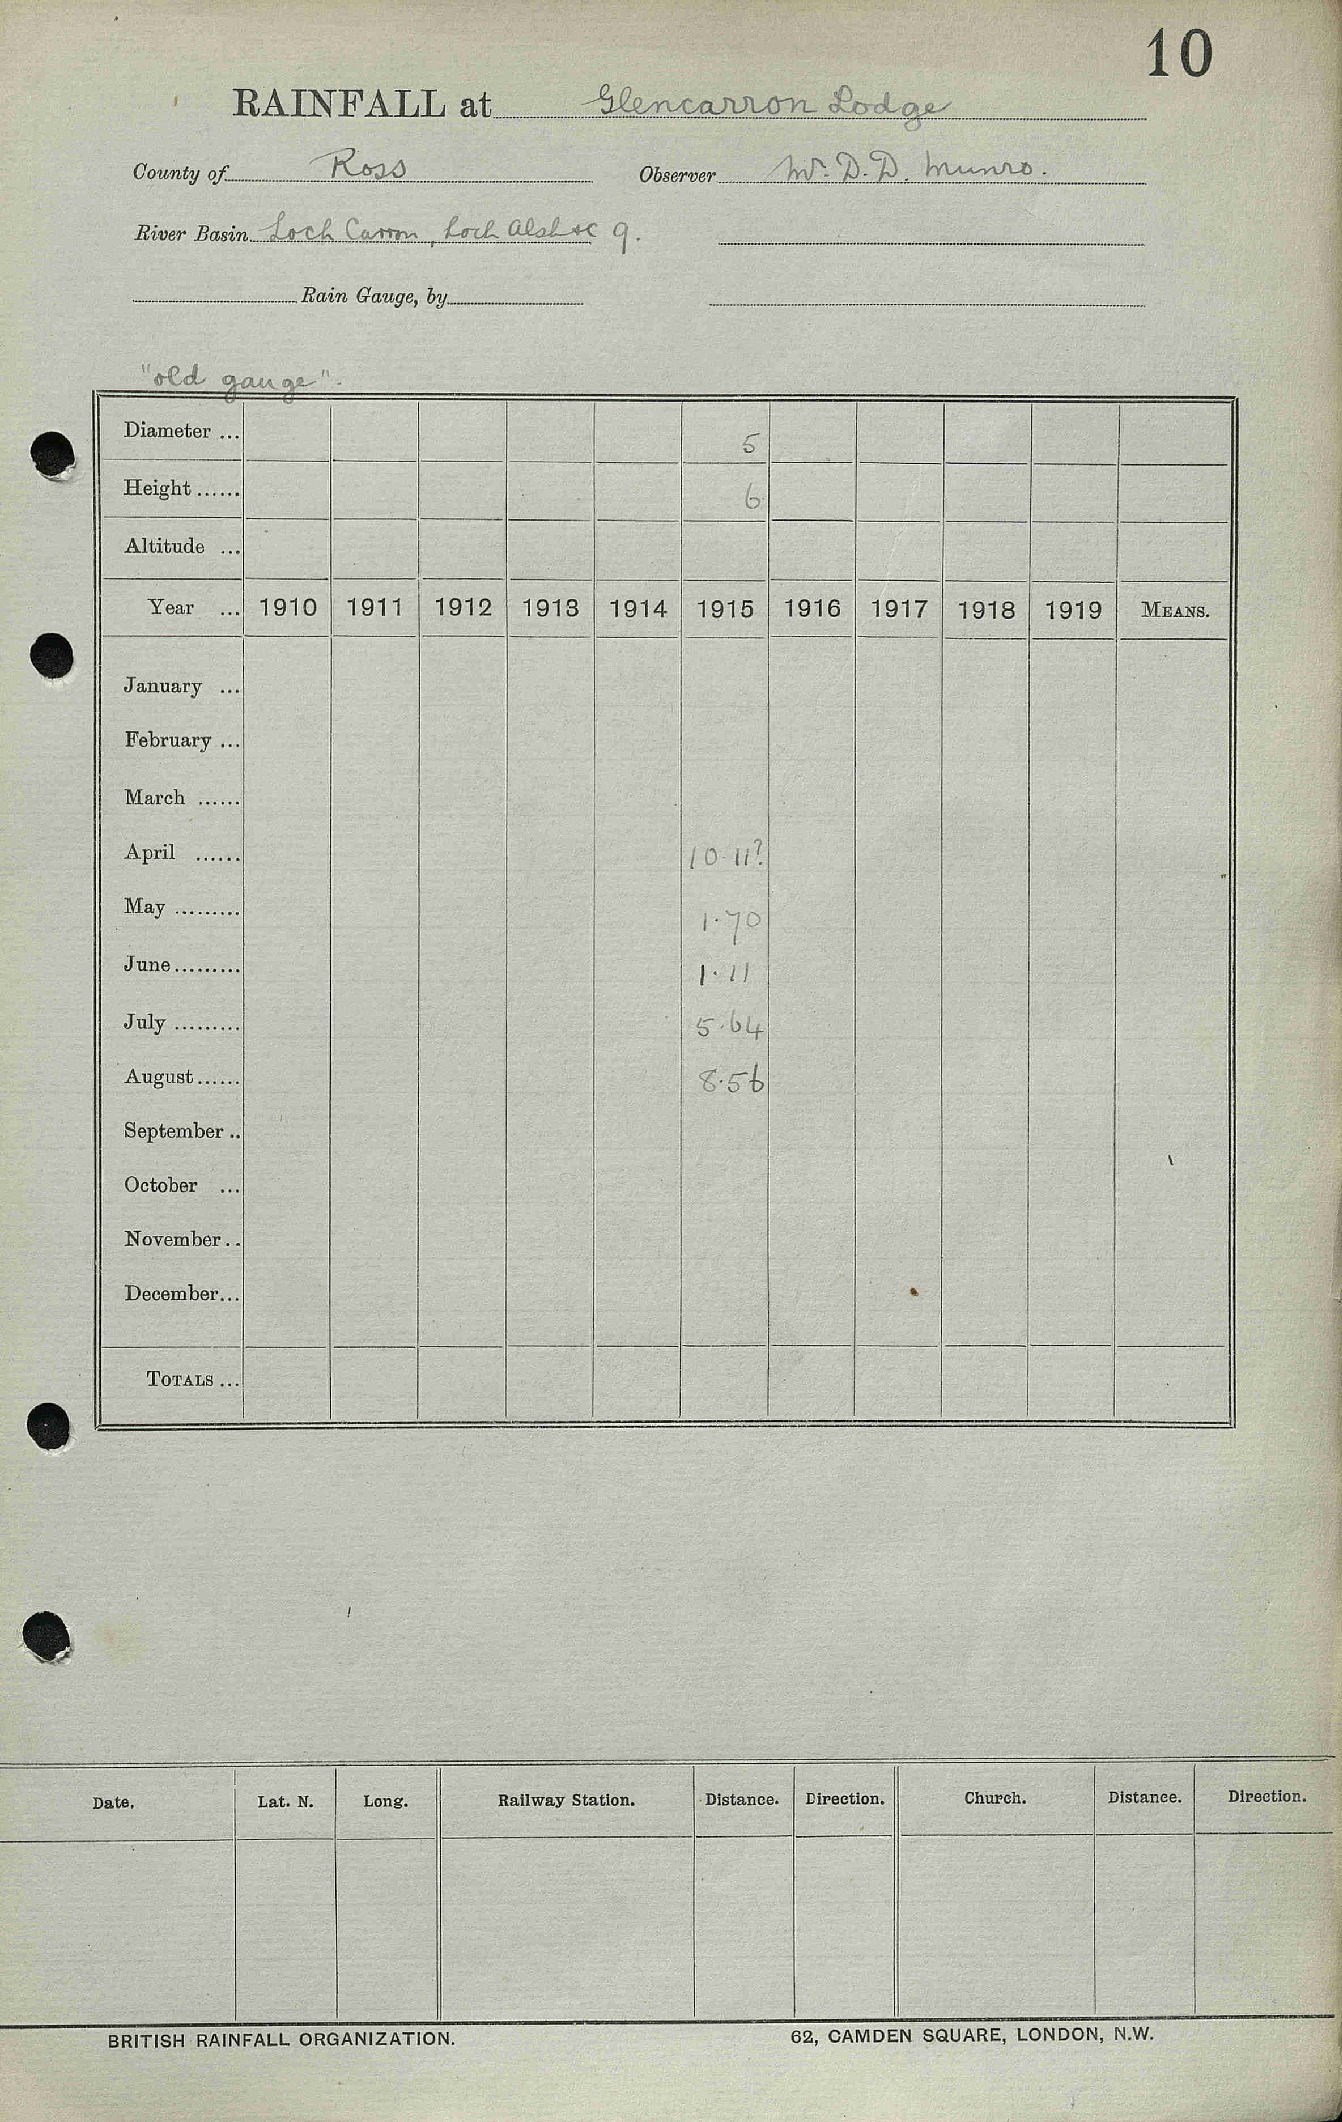 10
RAINFALL at Glencarron Lodge
County of Ross Observer Mr. D. D. Munro.
River Basin Loch Carron, Loch Alsh &c 9.
Rain Gauge, by
"old gauge".
Diameter ... 5
Height ...... 6
Altitude ...
Year ... 1910 1911 1912 1913 1914 1915 1916 1917 1918 1919 MEANS.
January ...
February ...
March ......
April ...... 10.11?
May ......... 1.70
June ......... 1.11
July ......... 5.64
August ...... 8.56
September ..
October ...
November ..
December ...
TOTALS ...
Date. Lat. N. Long. Railway Station. Distance. Direction. Church. Distance. Direction.
BRITISH RAINFALL ORGANIZATION. 62, CAMDEN SQUARE, LONDON, N.W.